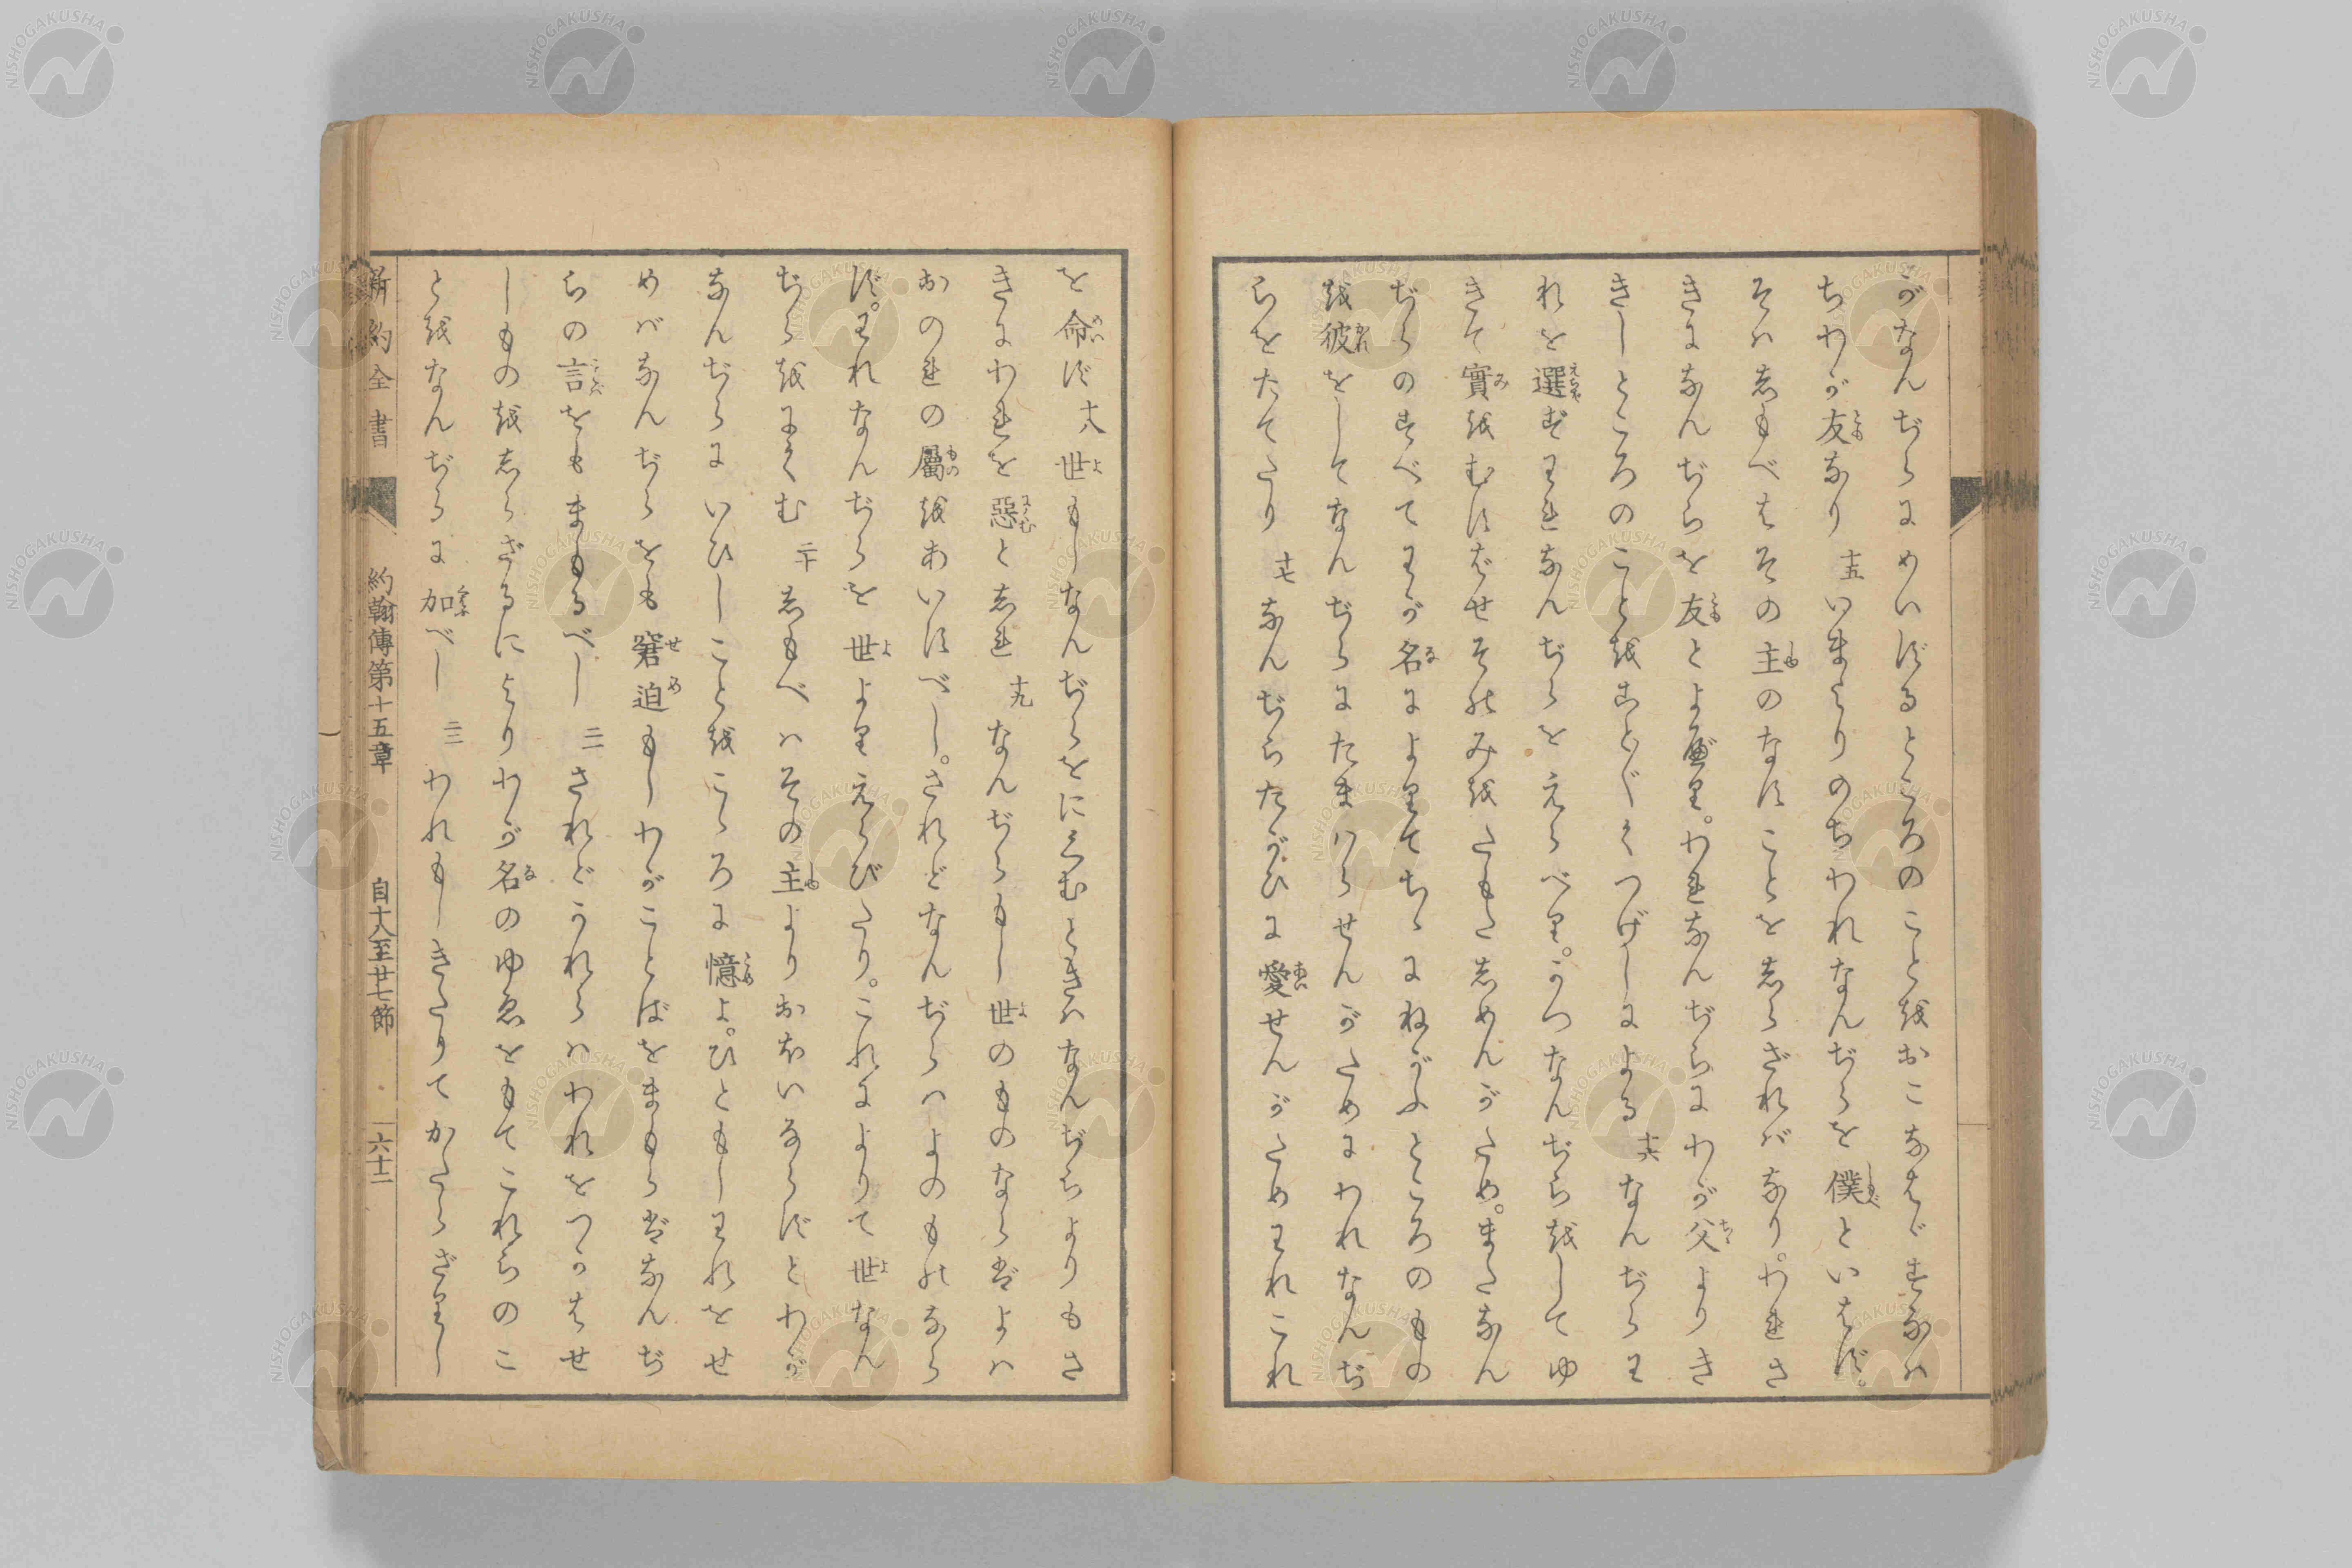 がなんぢらにめいずるところのことをおこなはゞすなハ
ちわが友なり 十五 いまよりのちわれなんぢらを僕といはず。
そハしもべはその主のなすことをしらざれバなり。われさ
きになんぢらを友とよべり。われなんぢらにわが父よりき
きしところのことをことごとくつげしによる 十六 なんぢらわ
れを選ずわれなんぢらをえらべり。かつなんぢらをしてゆ
きて實をむすばせそのみをたもたしめんがため。またなん
ぢらのすべてわが名によりてちゝにねがふところのもの
を彼をしてなんぢらにたまハらせんがためにわれなんぢ
らをたてたり 十七 なんぢらたがひに愛せんがためわれこれ
を命ず 十八 世もしなんぢらをにくむときハなんぢらよりもさ
きにわれを惡としれ 十九 なんぢらもし世のものならばよハ
おのれの屬をあいすべし。されどなんぢらハよのものなら
ず。われなんぢらを世よりえらびたり。これによりて世なん
ぢらをにくむ 二十 しもべハその主よりおほいならずとわが
なんぢらにいひしことをこゝろに憶よ。ひともしわれをせ
めバなんぢらをも窘迫もしわがことばをまもらばなんぢ
らの言をもまもるべし 二一 されどかれらハわれをつかはせ
しものをしらざるによりわが名のゆゑをもてこれらのこ
とをなんぢらに加べし 二二 われもしきたりてかたらざりし
新約全書 約翰傳第十五章 自十八至廿七節 一六十二
NISHOGAKUSHA